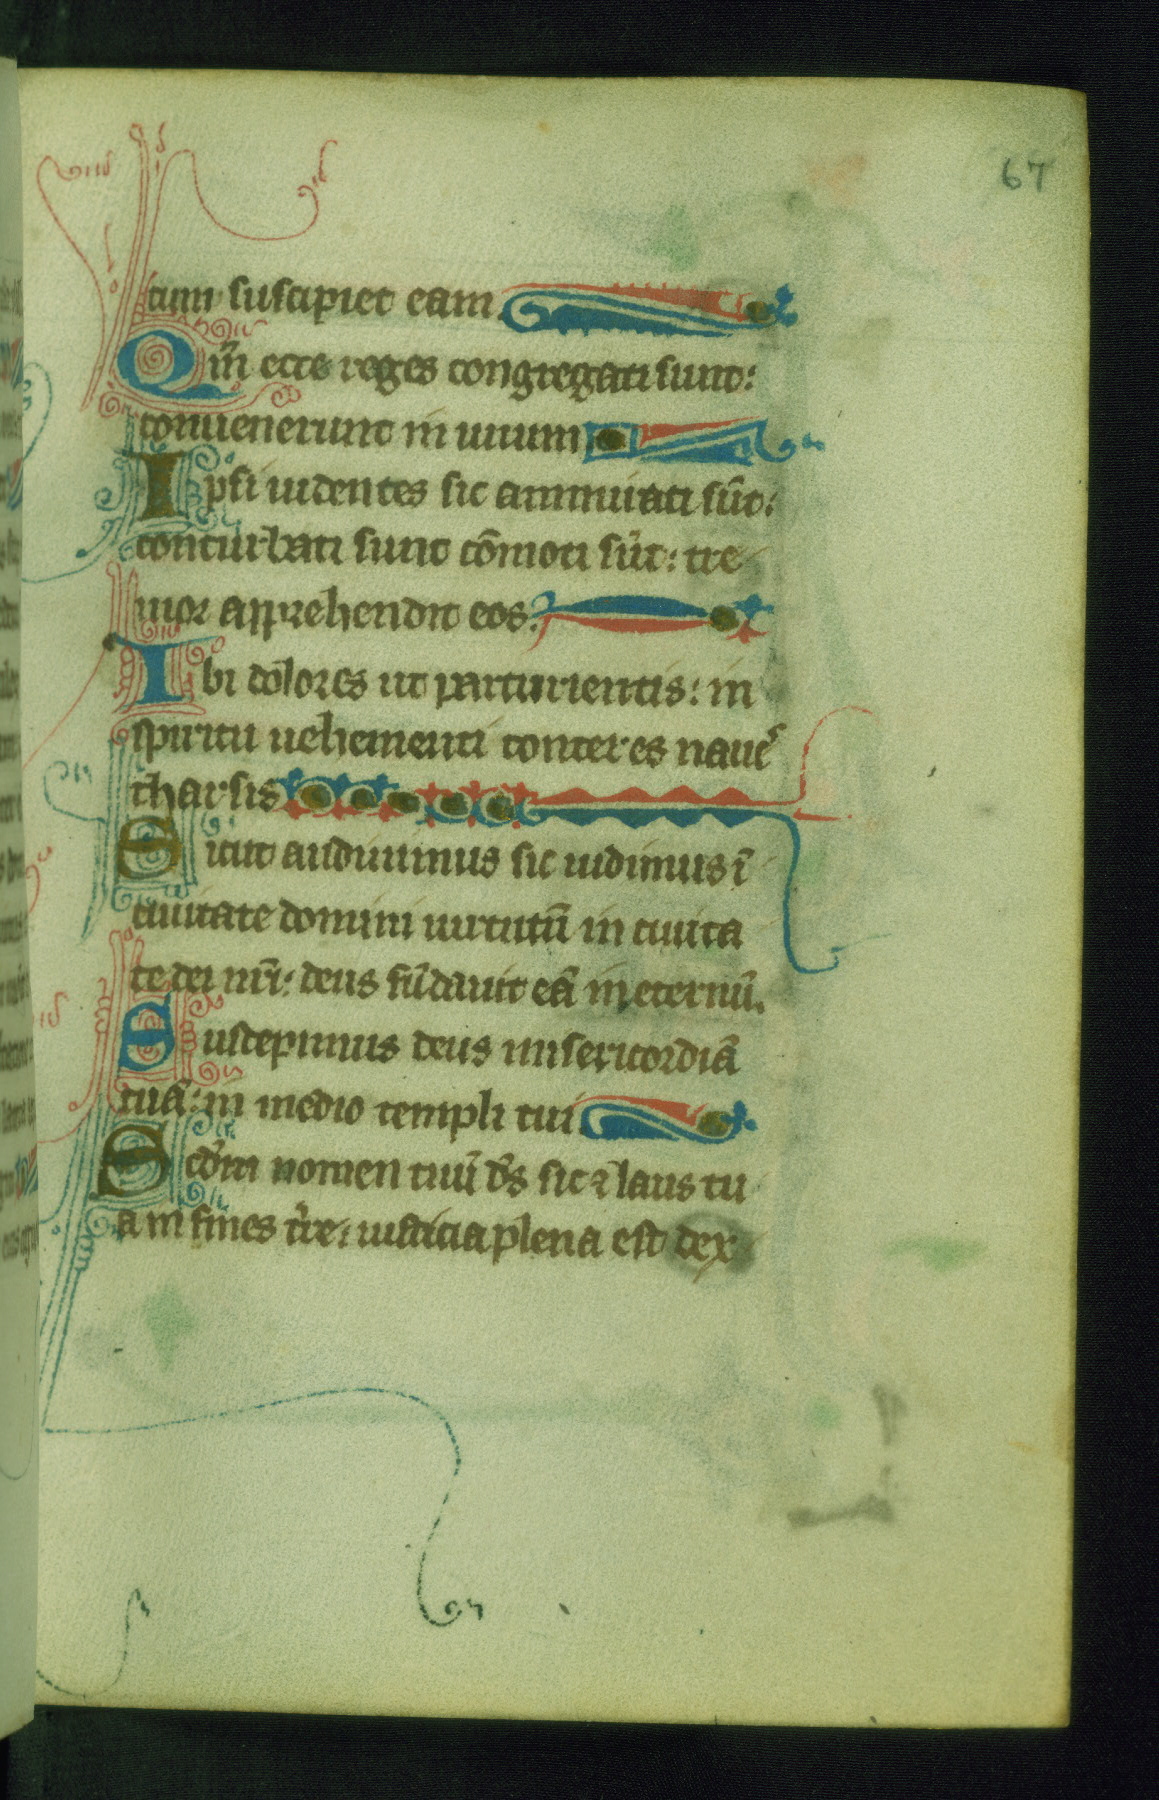 67
cum suscipiet eam
Qm̄ ecce reges congregati sunt:
conuenerunt in unum
Ipsi uidentes sic ammirati sūt:
conturbati sunt cōmoti sūt: tre
mor apprehendit eos.
Ibi dolores ut parturientis: in
spiritu uehementi conteres naues
tharsis
Sicut audiuimus sic uidimus ī
ciuitate domini uirtutū in ciuita
te dei nr̄i: deus fūdauit eā in eternū.
Suscepimus deus misericordiā
tuā: in medio templi tui
Scdm̄ nomen tuū ds̄ sic ⁊ laus tu
a in fines tr̄re: iusticia plena est dex